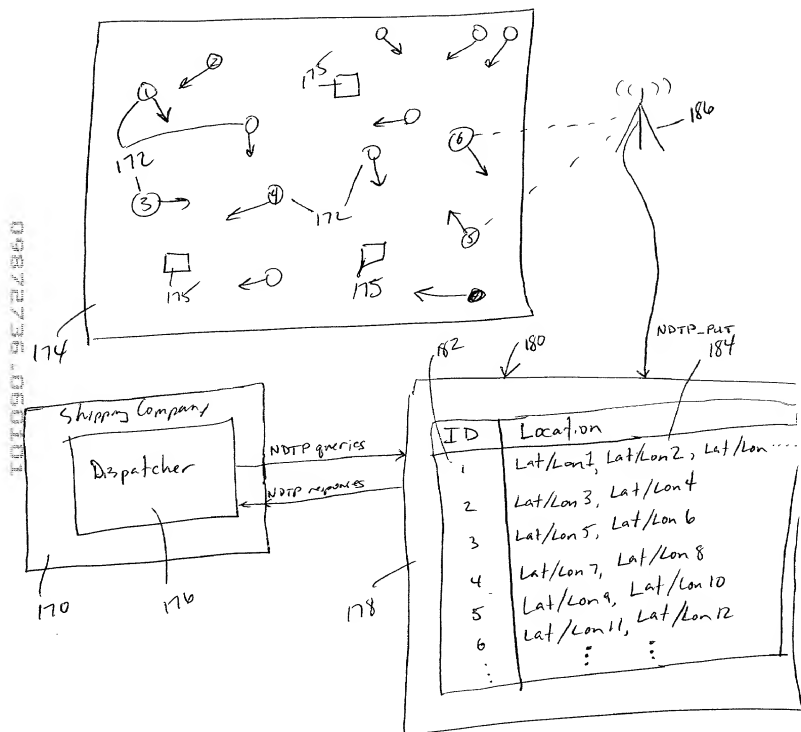 175
2
1
186
6
172
3
4
172
5
175
175
174
NDTP_PUT
182
180
184
Shipping Company
Dispatcher
NDTP queries
NDTP responses
ID Location
1 Lat/Lon1, Lat/Lon2, Lat/Lon ....
2 Lat/Lon3, Lat/Lon4
3 Lat/Lon5, Lat/Lon6
4 Lat/Lon7, Lat/Lon8
5 Lat/Lon9, Lat/Lon10
6 Lat/Lon11, Lat/Lon12
170
176
178